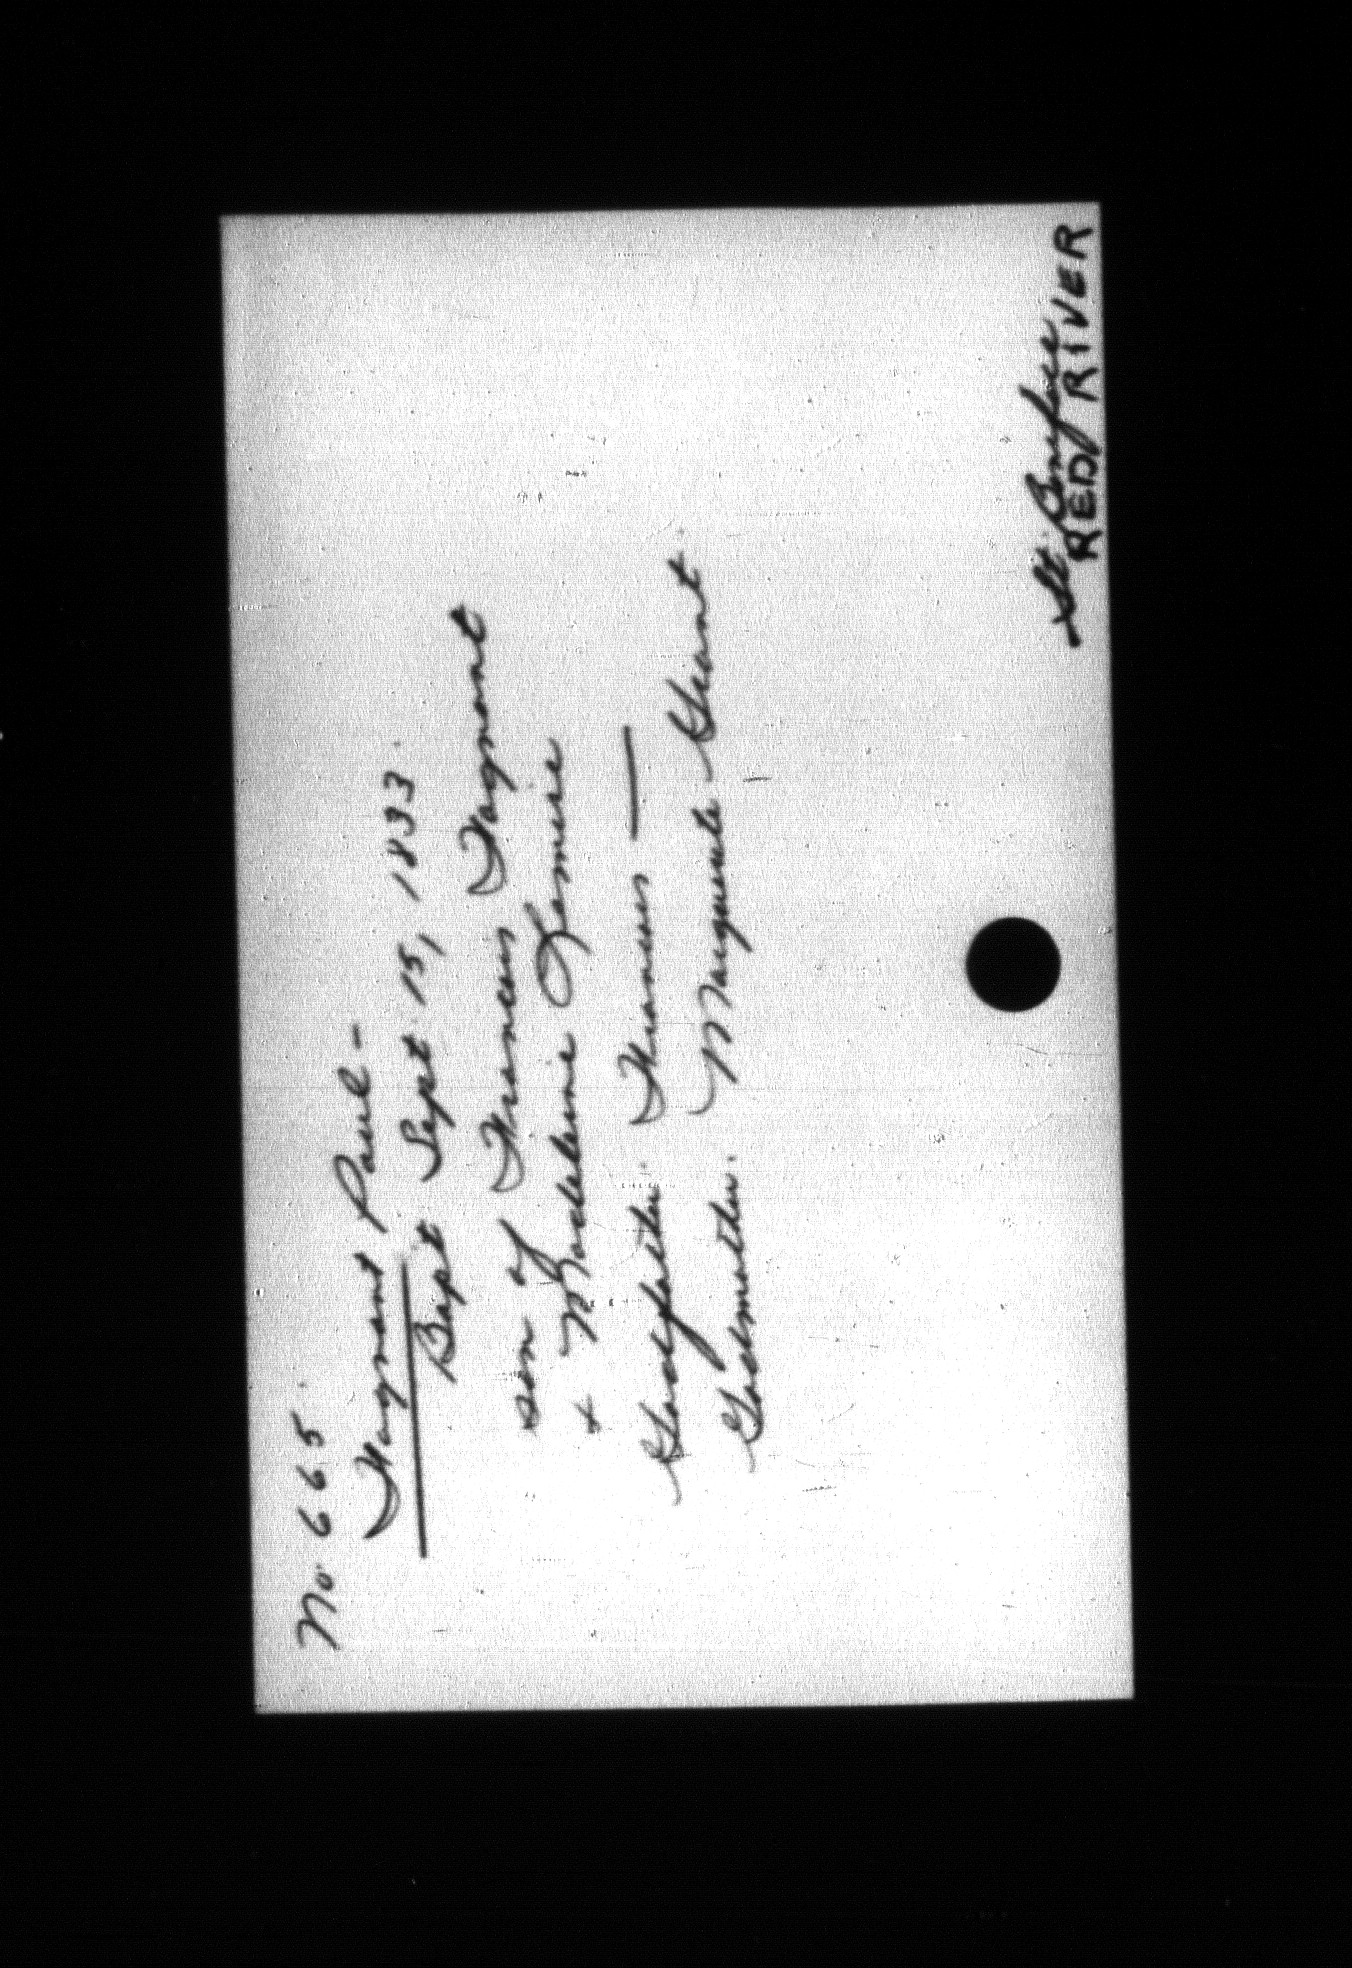 No 665.
Fagnant Paul -
Bapt Sept. 15, 1833.
son of Francois Fagnant
+ Madeleine Lamire
Godfather. Francois —
Godmother. Marguerite Grant.
St. Boniface
RED RIVER